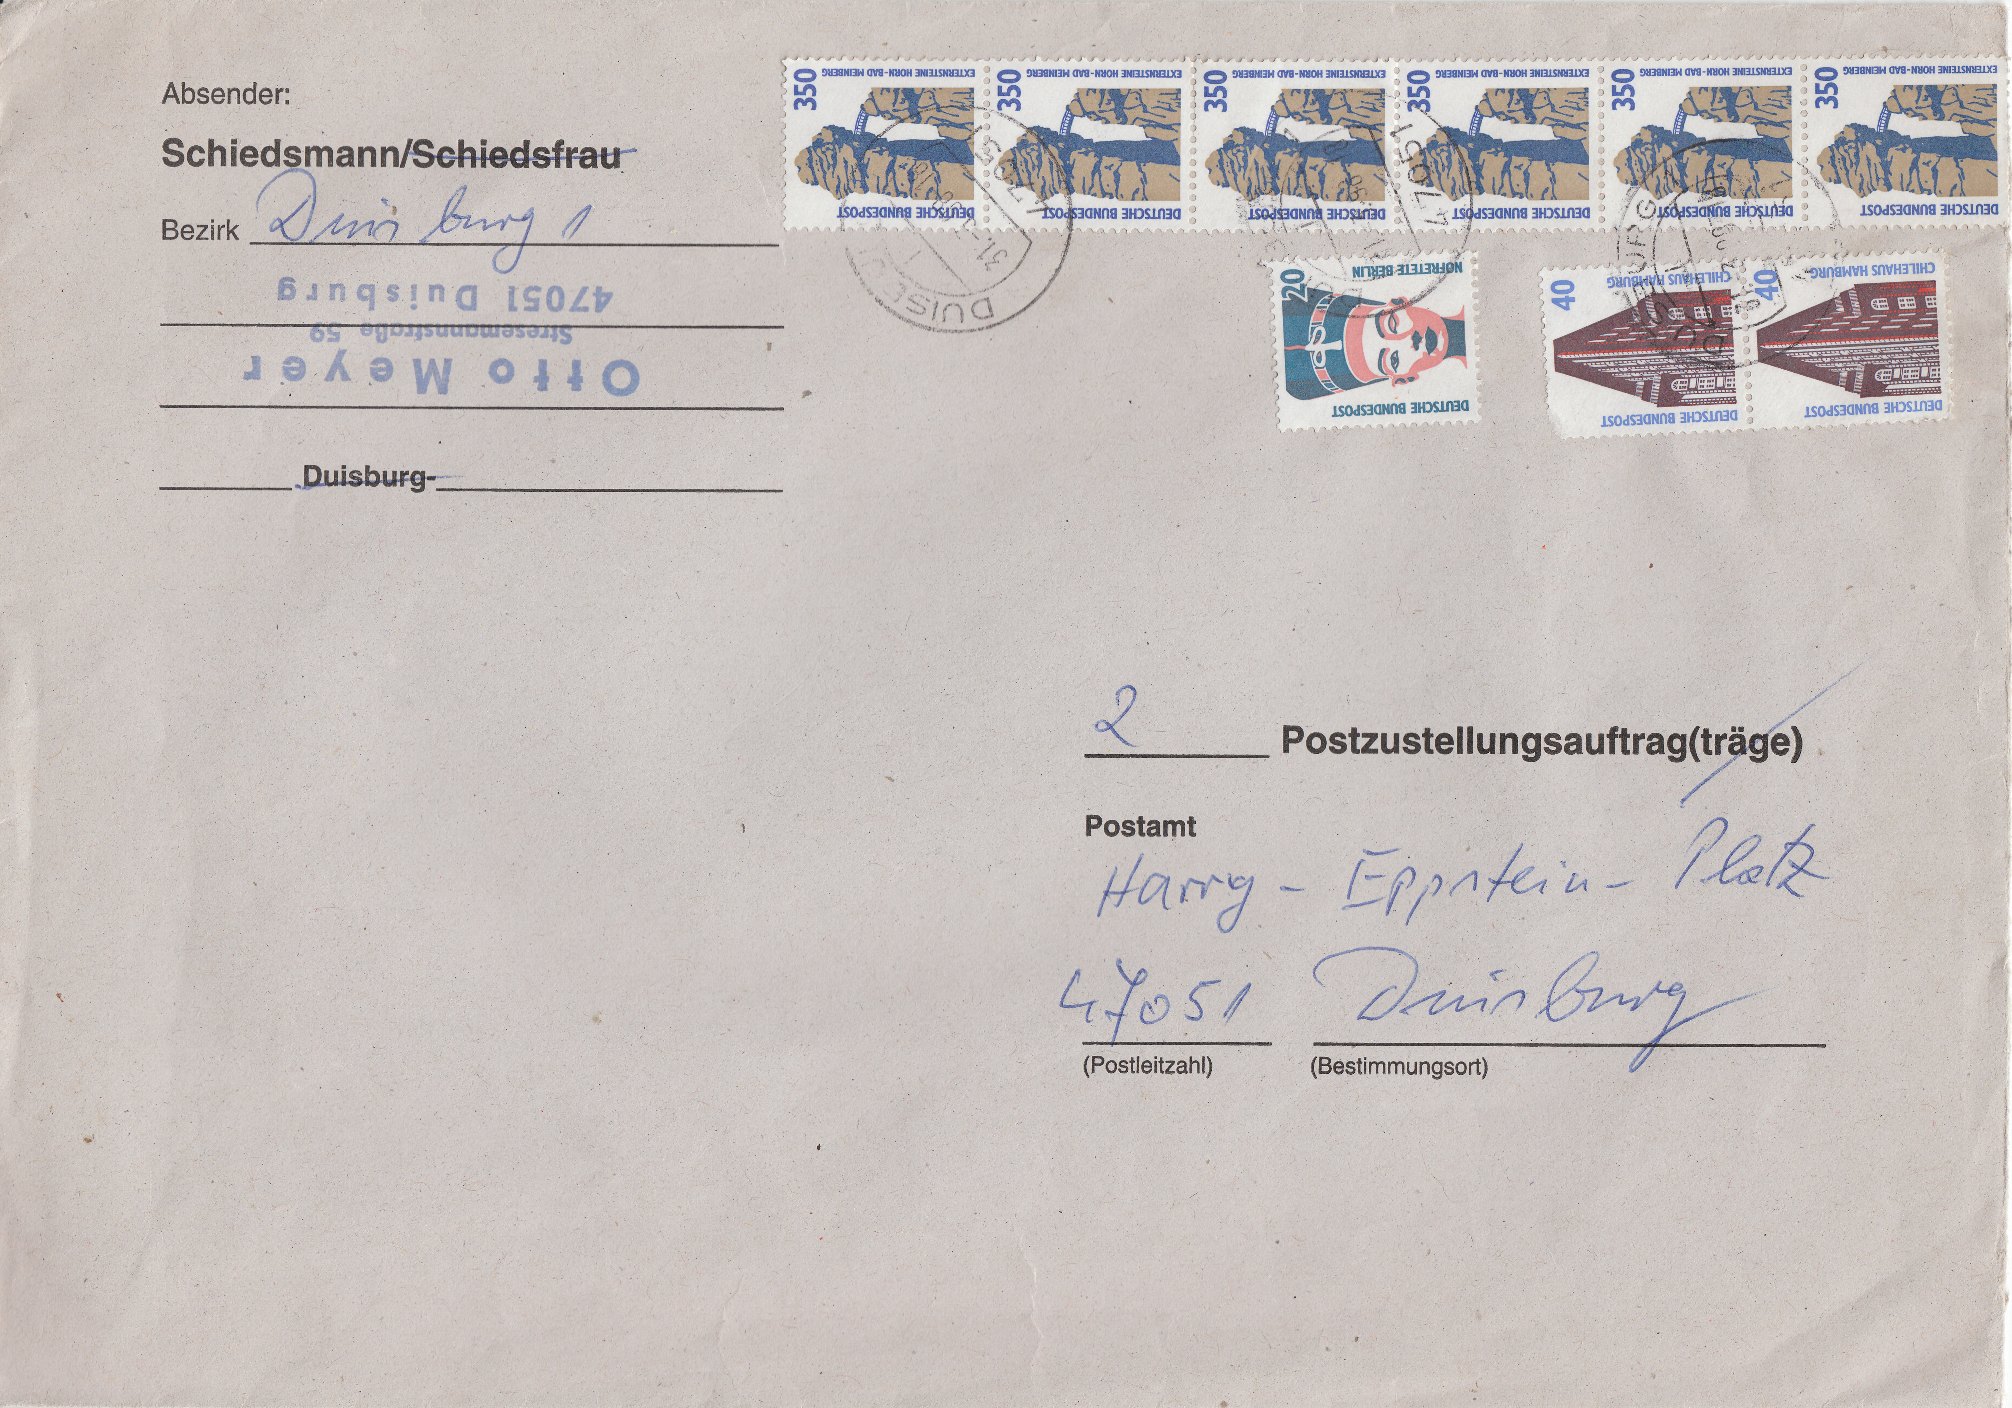 Absender:
Schiedsmann/Schiedsfrau
Bezirk Duisburg 1
47051 Duisburg
Stresemannstraße 59
Otto Meyer
Duisburg-
350 EXTERNSTEINE HORN-BAD MEINBERG
DEUTSCHE BUNDESPOST
350 EXTERNSTEINE HORN-BAD MEINBERG
DEUTSCHE BUNDESPOST
350 EXTERNSTEINE HORN-BAD MEINBERG
DEUTSCHE BUNDESPOST
350 EXTERNSTEINE HORN-BAD MEINBERG
DEUTSCHE BUNDESPOST
350 EXTERNSTEINE HORN-BAD MEINBERG
DEUTSCHE BUNDESPOST
350 EXTERNSTEINE HORN-BAD MEINBERG
DEUTSCHE BUNDESPOST
47051
20 NOFRETETE BERLIN
DEUTSCHE BUNDESPOST
40 CHILEHAUS HAMBURG
DEUTSCHE BUNDESPOST
40 CHILEHAUS HAMBURG
DEUTSCHE BUNDESPOST
2 Postzustellungsauftrag(träge)
Postamt
Harry-Eppstein-Platz
47051 Duisburg
(Postleitzahl) (Bestimmungsort)